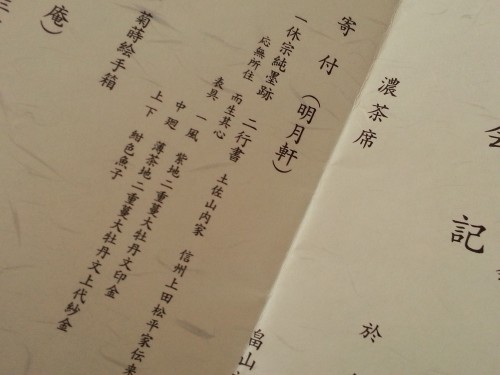 会記
濃茶席
於
畠山
寄付（明月軒）
一休宗純墨跡 二行書 土佐山内家 信州上田松平家伝来
応無所住 而生其心
表具 一風 紫地二重蔓大牡丹文印金
中廻 薄茶地二重蔓大牡丹文上代紗金
上下 紺色魚子
菊蒔絵手箱
庵）